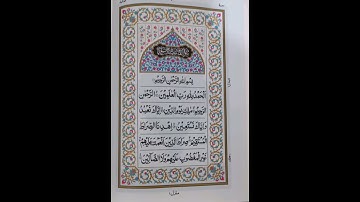 بِسْمِ اللّٰهِ الرَّحْمٰنِ الرَّحِيْمِ
اَلْحَمْدُ لِلّٰهِ رَبِّ الْعٰلَمِيْنَ ۙ الرَّحْمٰنِ
الرَّحِيْمِ ۙ مٰلِكِ يَوْمِ الدِّيْنِ ؕ اِيَّاكَ نَعْبُدُ
وَاِيَّاكَ نَسْتَعِيْنُ ؕ اِهْدِنَا الصِّرَاطَ
الْمُسْتَقِيْمَ ۙ صِرَاطَ الَّذِيْنَ اَنْعَمْتَ عَلَيْهِمْ
غَيْرِ الْمَغْضُوْبِ عَلَيْهِمْ وَلَا الضَّآلِّيْنَ